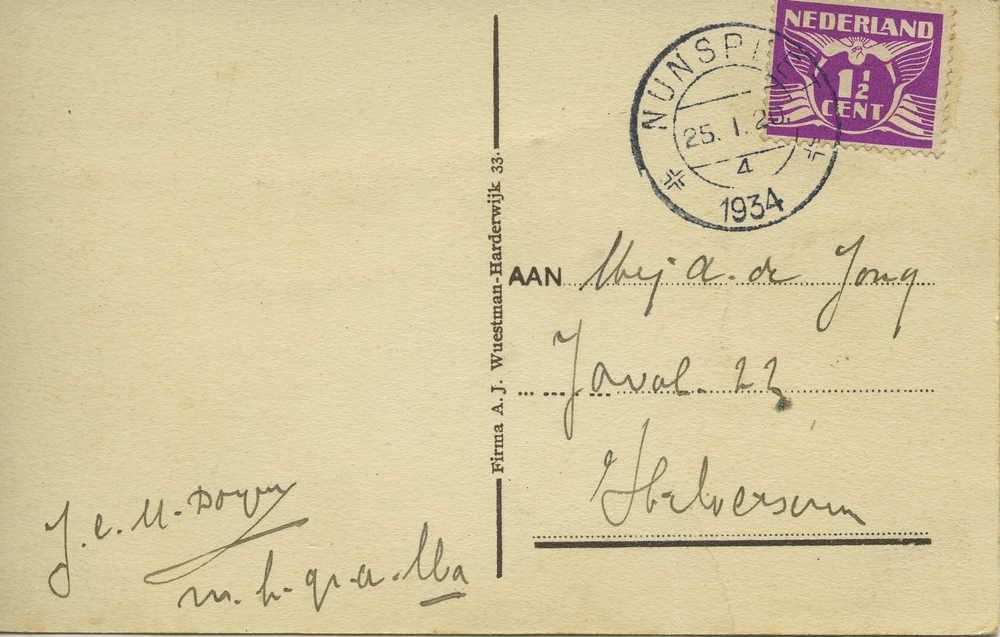 NEDERLAND
1½
CENT
NUNSPEET
25. 1. 20.
4
1934
Firma A. J. Wuestman-Harderwijk 33.
AAN Mej A. de Jong
Javal. 22
Hilversum
J. C. M.
m. h. gr. a. Ma